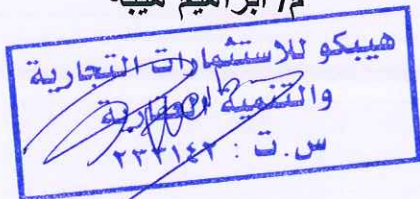 م/ ابراهيم هيبه
هيبكو للاستثمارات التجارية
والتنمية العقارية
س.ت : ٢٣٣١٤٢